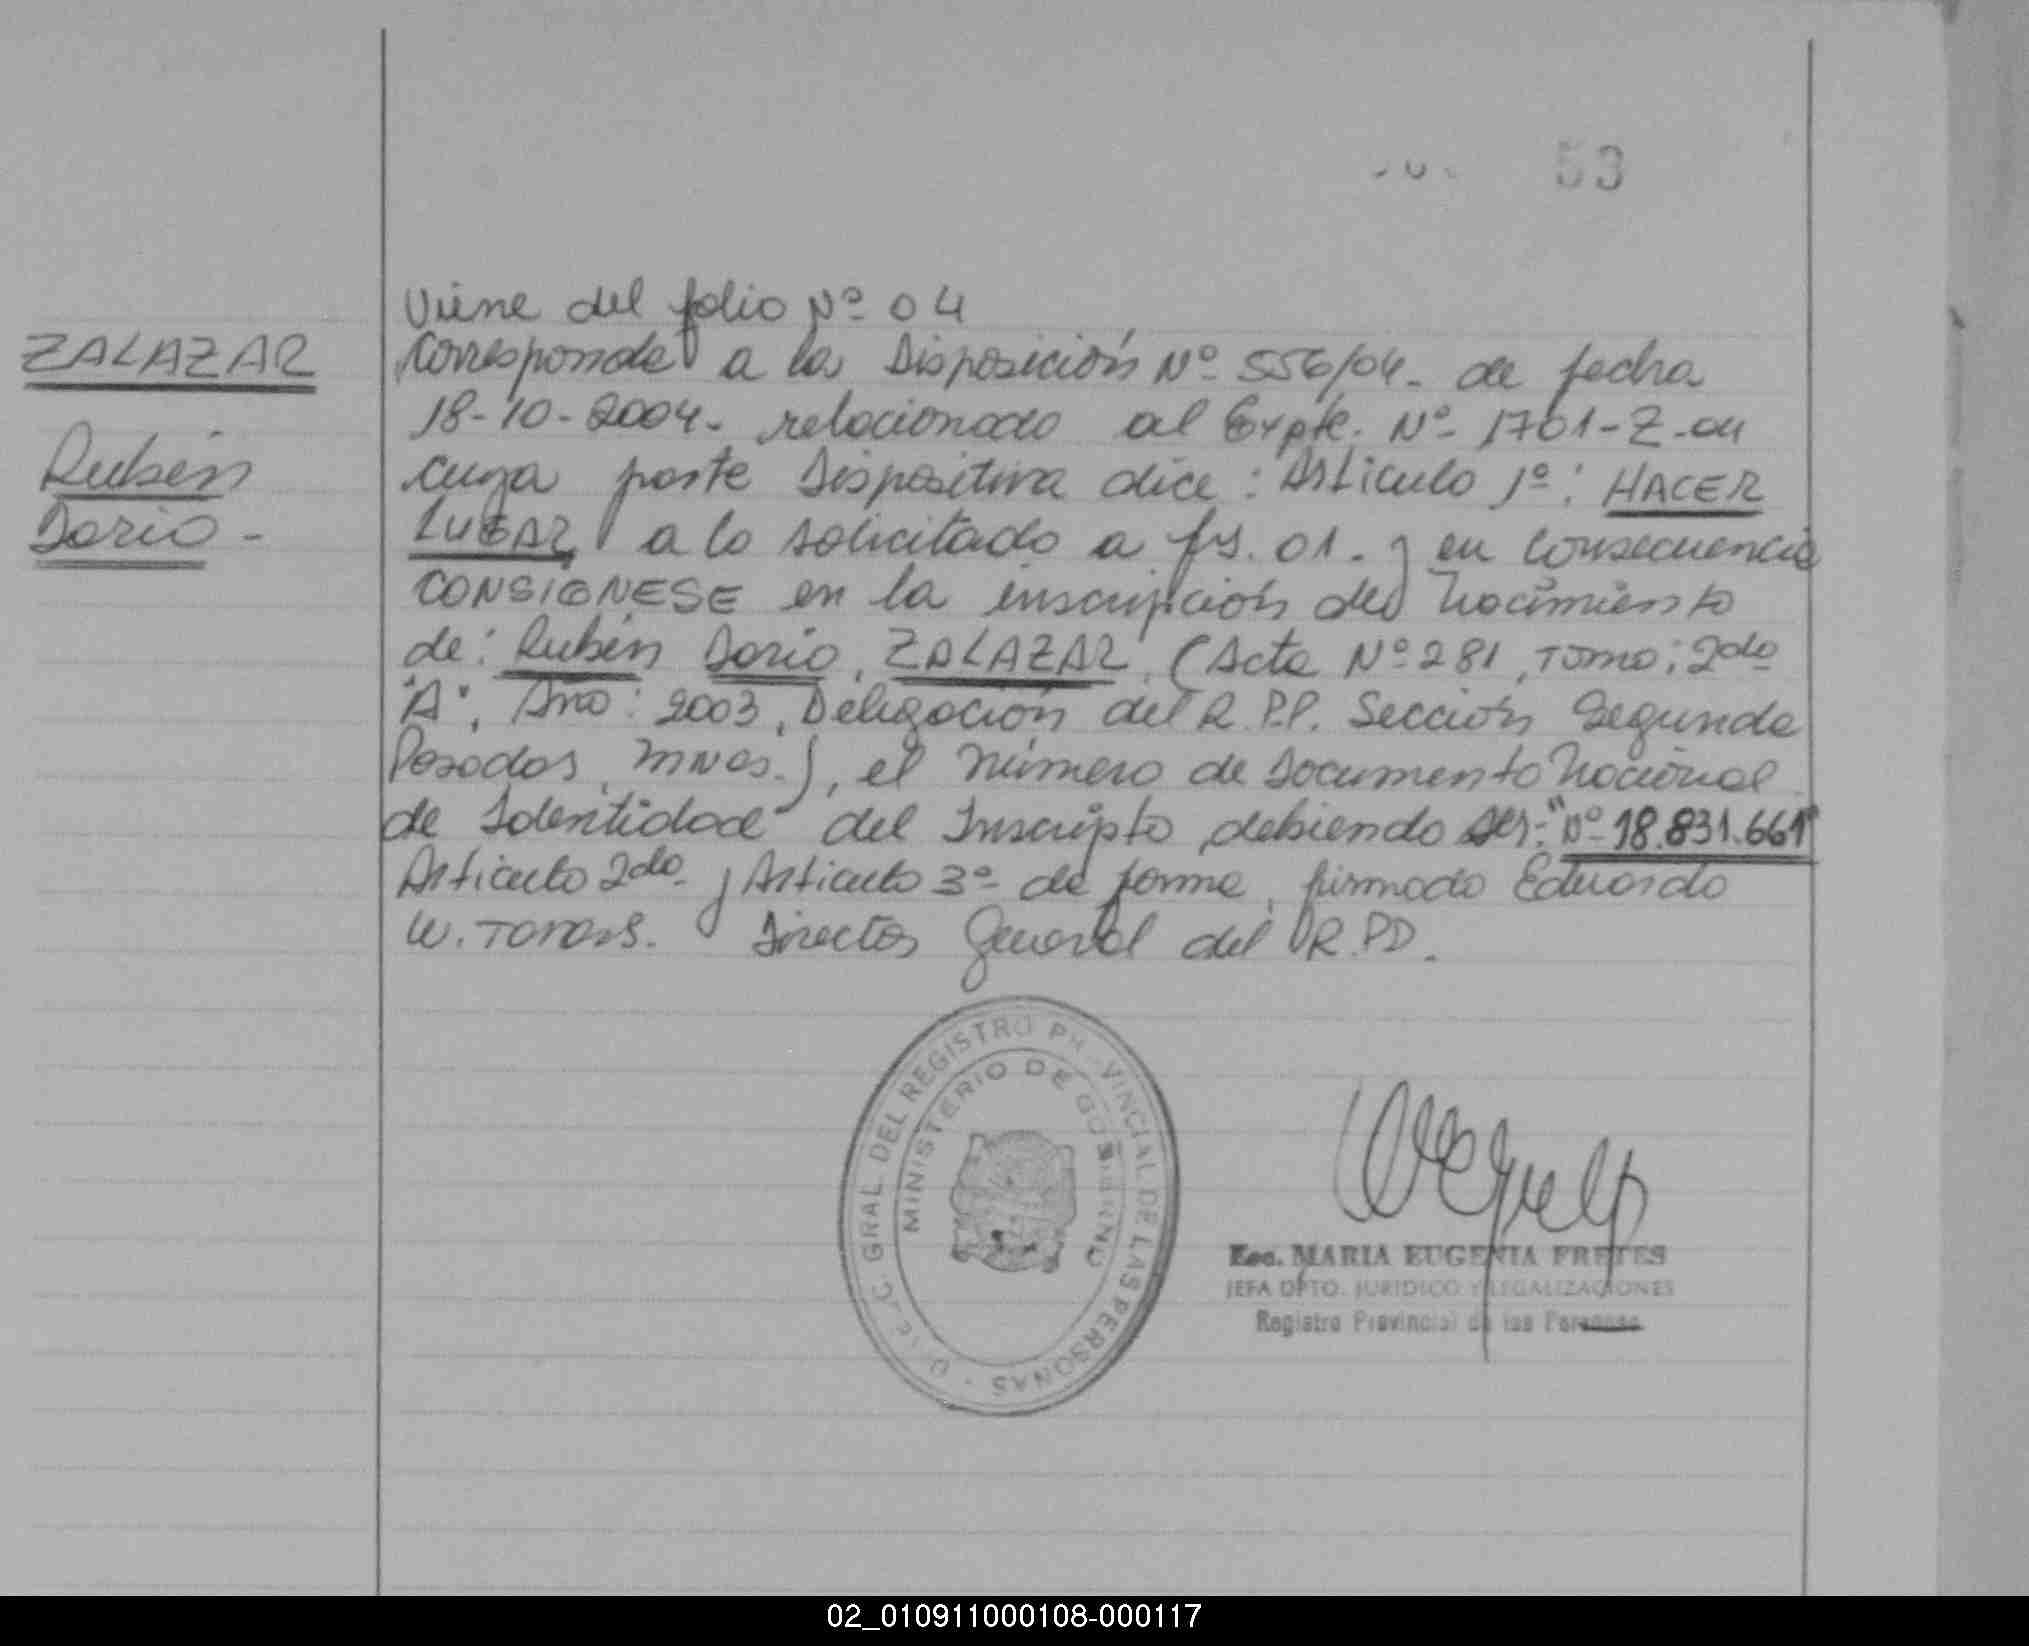 53
Viene del folio Nº 04
ZALAZAR
Corresponde a la Disposición Nº 556/04- de fecha
18-10-2004- relacionado al Expte. Nº 1701-Z-04
Rubén
cuya parte Dispositiva dice: Artículo 1º: HACER
Dario -
LUGAR a lo solicitado a fs. 01. y en consecuencia
CONSIGNESE en la inscripción de nacimiento
de: Rubén Dario, ZALAZAR, (Acta Nº 281, Tomo: 2do
"A", Año: 2003, Delegación del R.P.P. Sección Segunda
Posadas, Mnes.), el número de Documento Nacional
de Identidad del Inscripto, debiendo ser: "Nº 18.831.661"
Artículo 2do y Artículo 3º de forma, firmado Eduardo
W. Director General del R.P.P.
DIREC. GRAL. DEL REGISTRO PROVINCIAL DE LAS PERSONAS
MINISTERIO DE GOBIERNO
Esc. MARIA EUGENIA FRETES
JEFA DPTO. JURIDICO Y LEGALIZACIONES
Registro Provincial de las Personas
02_010911000108-000117